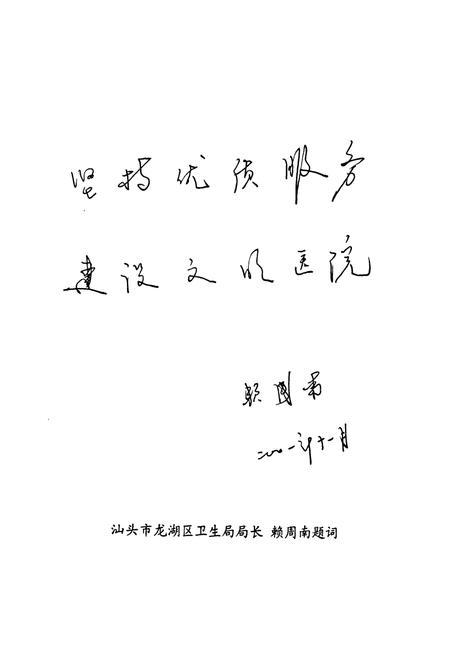 坚持优质服务
建设文明医院
赖周南
二〇〇一年十一月
汕头市龙湖区卫生局局长 赖周南题词